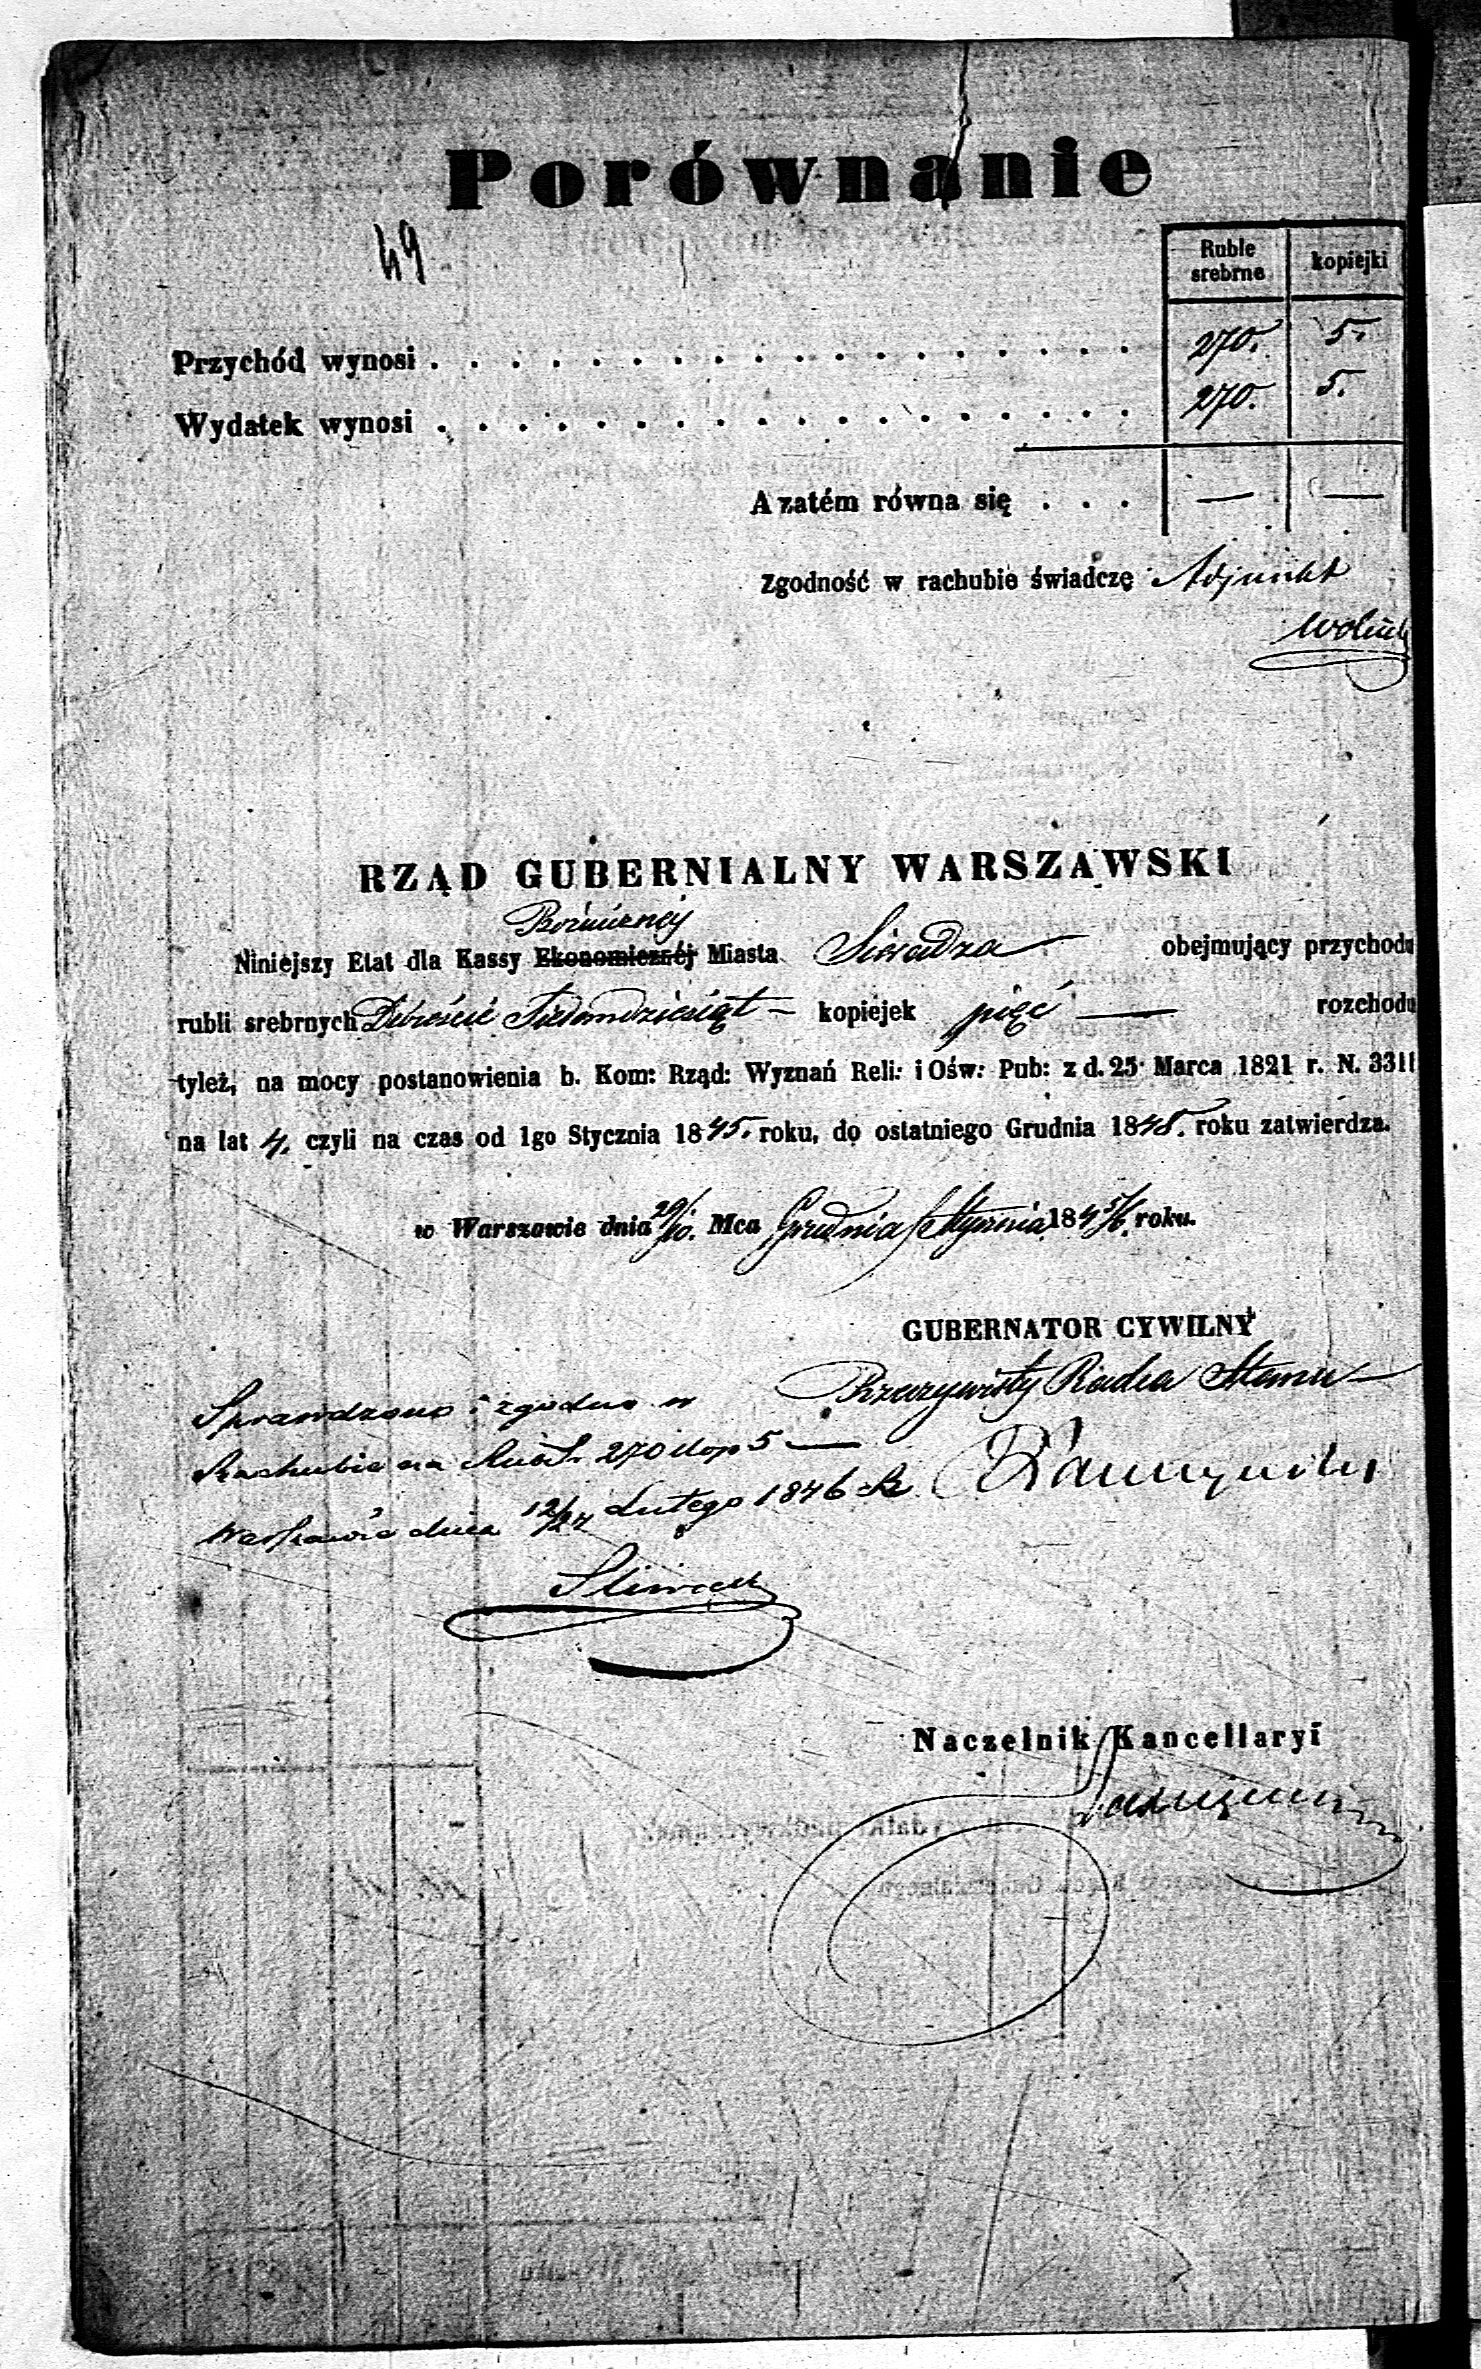 Porównanie
49
Ruble srebrne kopiejki
Przychód wynosi . . . . . . . . . . . . . . . . . . 270. 5.
Wydatek wynosi . . . . . . . . . . . . . . . . . . 270. 5.
A zatém równa się . . . — —
Zgodność w rachubie świadczę Adjunkt
RZĄD GUBERNIALNY WARSZAWSKI
Bożniczney
Niniejszy Etat dla Kassy Ekonomicznéj Miasta Sieradza obejmujący przychodu
rubli srebrnych Dwieście Siedmdziesiąt — kopiejek pięć — rozchodu
tyleż, na mocy postanowienia b. Kom: Rząd: Wyznań Reli: i Ośw: Pub: z d. 25 Marca 1821 r. N. 3311
na lat 4. czyli na czas od 1go Stycznia 1845. roku, do ostatniego Grudnia 1848. roku zatwierdza.
w Warszawie dnia 29/10. Mca Grudnia/Stycznia 1845/6. roku.
GUBERNATOR CYWILNY
Rzeczywisty Radca Stanu
Sprawdzono i zgodno w
Rachubie na 270 kop 5 —
Warszawie dnia 12/24 Lutego 1846 R
Naczelnik Kancellaryi